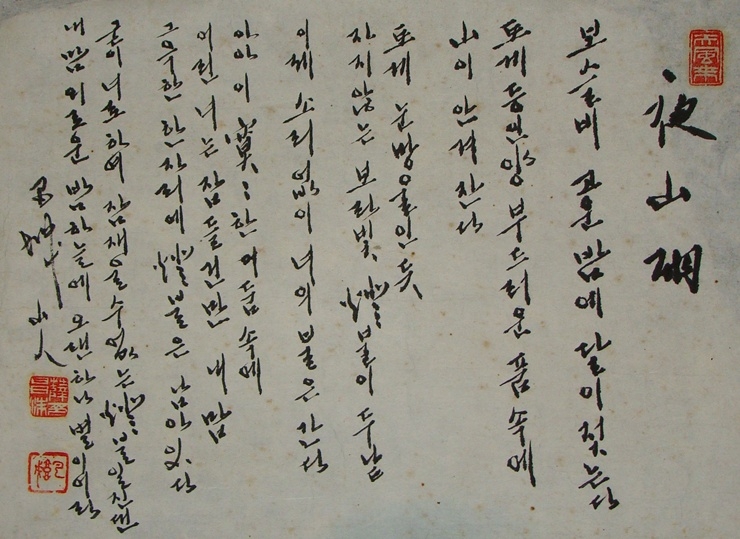 夜山
보슬비 고운 밤에 달이 젖는다
포게 등인양 부드러운 품 속에
山이 안겨 잔다
포게 눈망울인 듯
자지 않는 보랏빛 燈불이 두남
이제 소리 없이 너의 불은 간다
아아 이 寞〻한 어둠 속에
어린 너는 잠들건만 내 맘
그윽한 한 자리에 燈불은 남아있다
굳이 너로 하여 잠재울 수 없는 燈불일진댄
내 맘 외로운 밤하늘에 오랜 하나 별이어라
山人